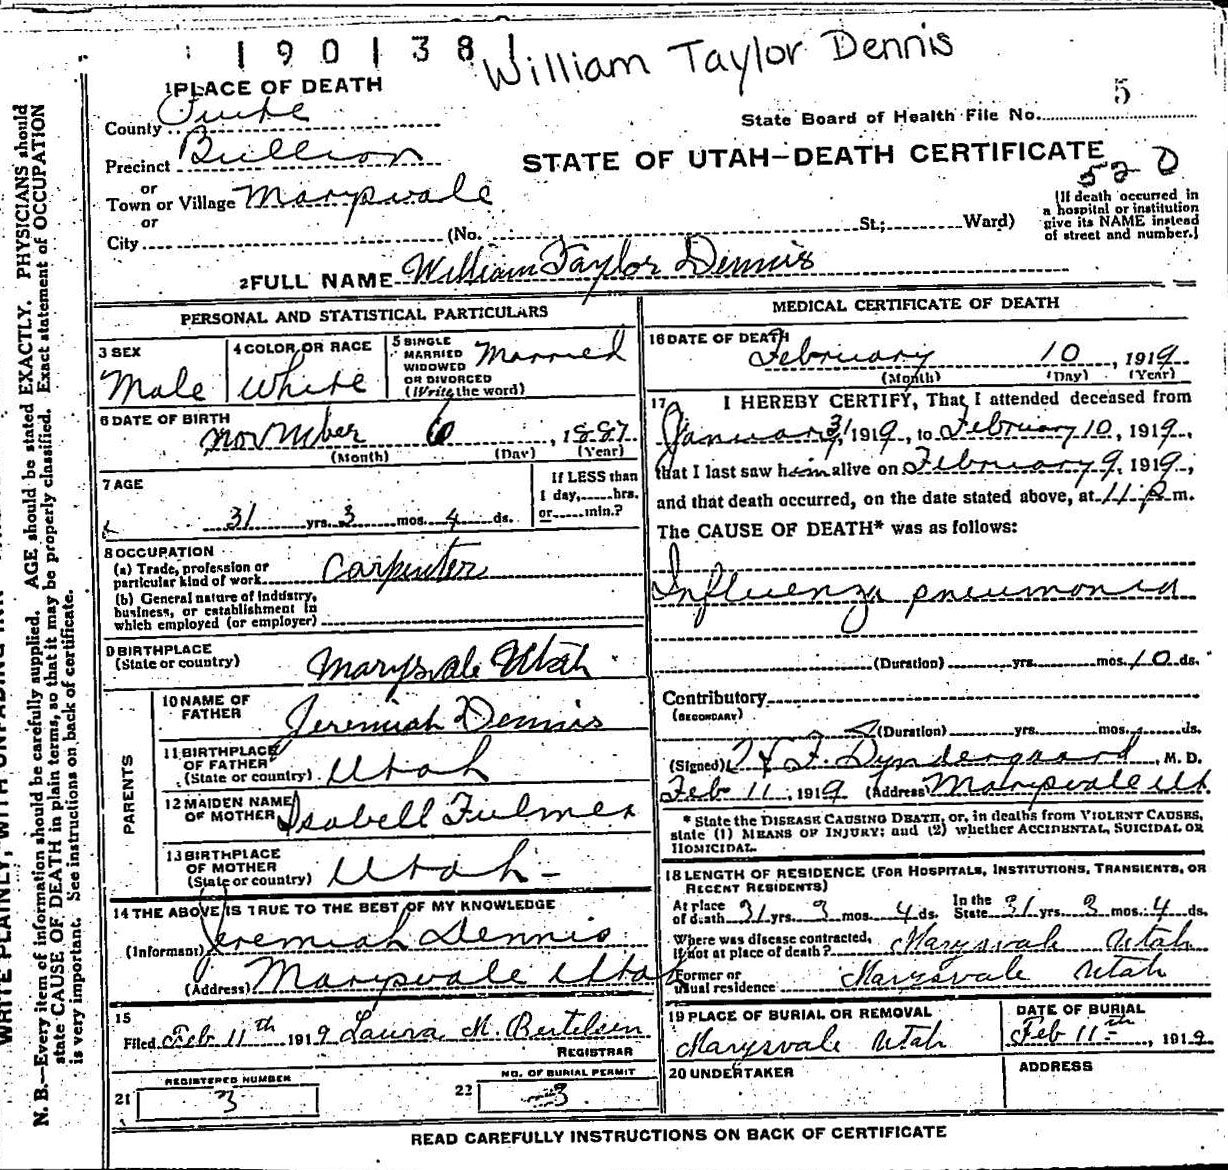 190138
William Taylor Dennis
1 PLACE OF DEATH
County Piute
5
State Board of Health File No.
Precinct Bullion
STATE OF UTAH—DEATH CERTIFICATE
520
or
Town or Village Marysvale
or
City (No. St.; Ward)
[If death occurred in
a hospital or institution
give its NAME instead
of street and number.]
2 FULL NAME William Taylor Dennis
PERSONAL AND STATISTICAL PARTICULARS
3 SEX
Male
4 COLOR OR RACE
White
5 SINGLE
MARRIED
WIDOWED
OR DIVORCED
(Write the word)
Married
6 DATE OF BIRTH
November 6, 1887
(Month) (Day) (Year)
7 AGE
31 yrs. 3 mos. 4 ds.
If LESS than
1 day, hrs.
or min.?
8 OCCUPATION
(a) Trade, profession or
particular kind of work Carpenter
(b) General nature of industry,
business, or establishment in
which employed (or employer)
9 BIRTHPLACE
(State or country) Marysvale Utah
PARENTS
10 NAME OF
FATHER Jeremiah Dennis
11 BIRTHPLACE
OF FATHER
(State or country) Utah
12 MAIDEN NAME
OF MOTHER Isabell Fulmer
13 BIRTHPLACE
OF MOTHER
(State or country) Utah
14 THE ABOVE IS TRUE TO THE BEST OF MY KNOWLEDGE
(Informant) Jeremiah Dennis
(Address) Marysvale Utah
15
Filed Feb 11th 1919 Laura M. Bertelsen
REGISTRAR
REGISTERED NUMBER
21 3
NO. OF BURIAL PERMIT
22 3
MEDICAL CERTIFICATE OF DEATH
16 DATE OF DEATH
February 10, 1919
(Month) (Day) (Year)
17 I HEREBY CERTIFY, That I attended deceased from
January 31, 1919, to February 10, 1919,
that I last saw him alive on February 9, 1919,
and that death occurred, on the date stated above, at 11 p m.
The CAUSE OF DEATH* was as follows:
Influenza pneumonia
(Duration) yrs. mos. 10 ds.
Contributory
(SECONDARY)
(Duration) yrs. mos. ds.
(Signed) , M. D.
Feb 11, 1919 (Address) Marysvale Ut.
* State the DISEASE CAUSING DEATH, or, in deaths from VIOLENT CAUSES,
state (1) MEANS OF INJURY; and (2) whether ACCIDENTAL, SUICIDAL OR
HOMICIDAL.
18 LENGTH OF RESIDENCE (FOR HOSPITALS, INSTITUTIONS, TRANSIENTS, OR
RECENT RESIDENTS)
At place
of death 31 yrs. 3 mos. 4 ds. In the
State 31 yrs. 3 mos. 4 ds.
Where was disease contracted,
if not at place of death? Marysvale Utah
Former or
usual residence Marysvale Utah
19 PLACE OF BURIAL OR REMOVAL
Marysvale Utah
DATE OF BURIAL
Feb 11th, 1919
20 UNDERTAKER
ADDRESS
READ CAREFULLY INSTRUCTIONS ON BACK OF CERTIFICATE
N. B.—Every item of information should be carefully supplied. AGE should be stated EXACTLY. PHYSICIANS should
state CAUSE OF DEATH in plain terms, so that it may be properly classified. Exact statement of OCCUPATION
is very important. See instructions on back of certificate.
WRITE PLAINLY, WITH UNFADING INK